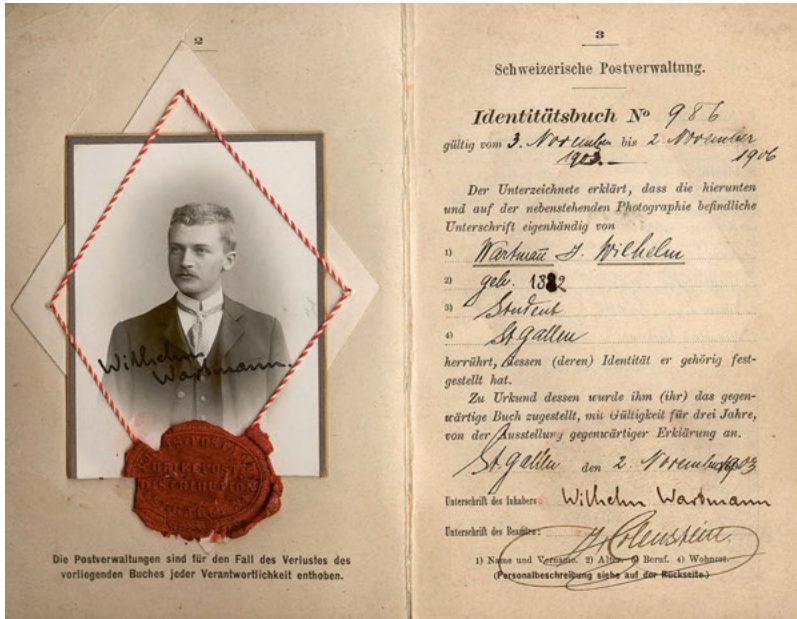 2
Wilhelm
Wartmann.
BRIEFPOST
Die Postverwaltungen sind für den Fall des Verlustes des
vorliegenden Buches jeder Verantwortlichkeit enthoben.
3
Schweizerische Postverwaltung.
Identitätsbuch No 986
gültig vom 3. November bis 2. November
1903.— 1906
Der Unterzeichnete erklärt, dass die hierunten
und auf der nebenstehenden Photographie befindliche
Unterschrift eigenhändig von
1) Wartmann J. Wilhelm
2) geb. 1882
3) Student
4) St. gallen
herrührt, dessen (deren) Identität er gehörig fest-
gestellt hat.
Zu Urkund dessen wurde ihm (ihr) das gegen-
wärtige Buch zugestellt, mit Gültigkeit für drei Jahre,
von der Ausstellung gegenwärtiger Erklärung an.
St. gallen den 2. November 1903
Unterschrift des Inhabers: Wilhelm Wartmann
Unterschrift des Beamten:
1) Name und Vorname. 2) Alter. 3) Beruf. 4) Wohnort.
(Personalbeschreibung siehe auf der Rückseite.)